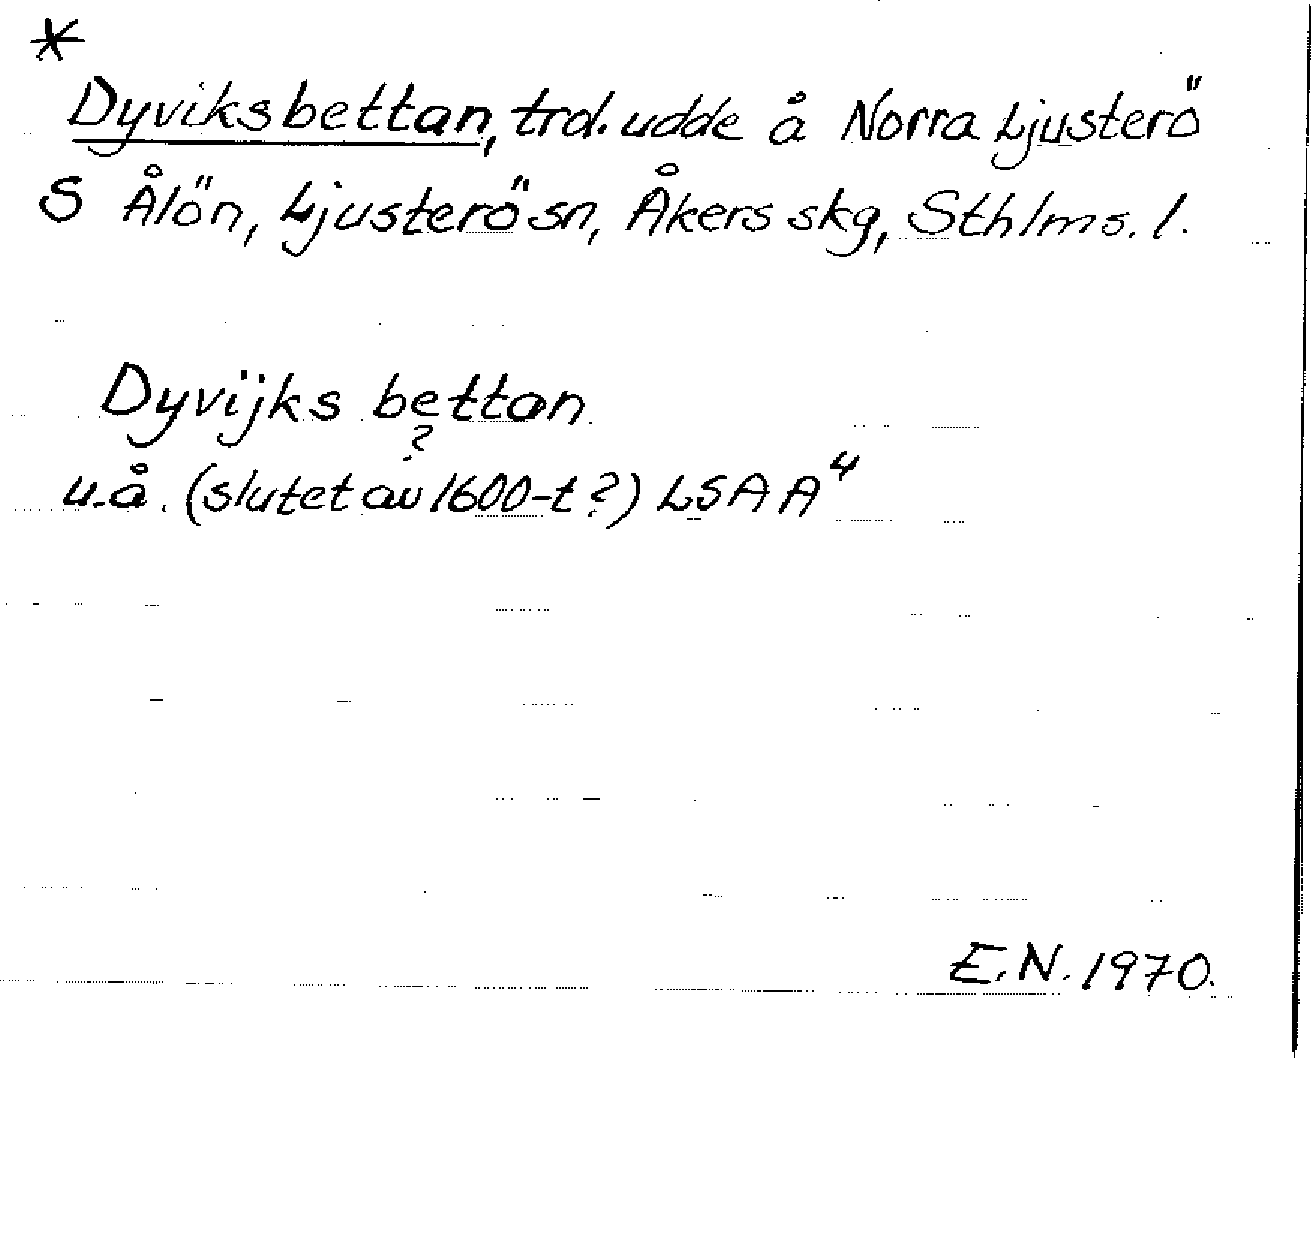 *
Dyviksbettan, trol. udde å Norra Ljusterö
S Ålön, Ljusterö sn, Åkers skg, Sthlms. l.
Dyvijks bettan
?
u.å. (slutet av 1600-t?) LSA A⁴
E.N. 1970.